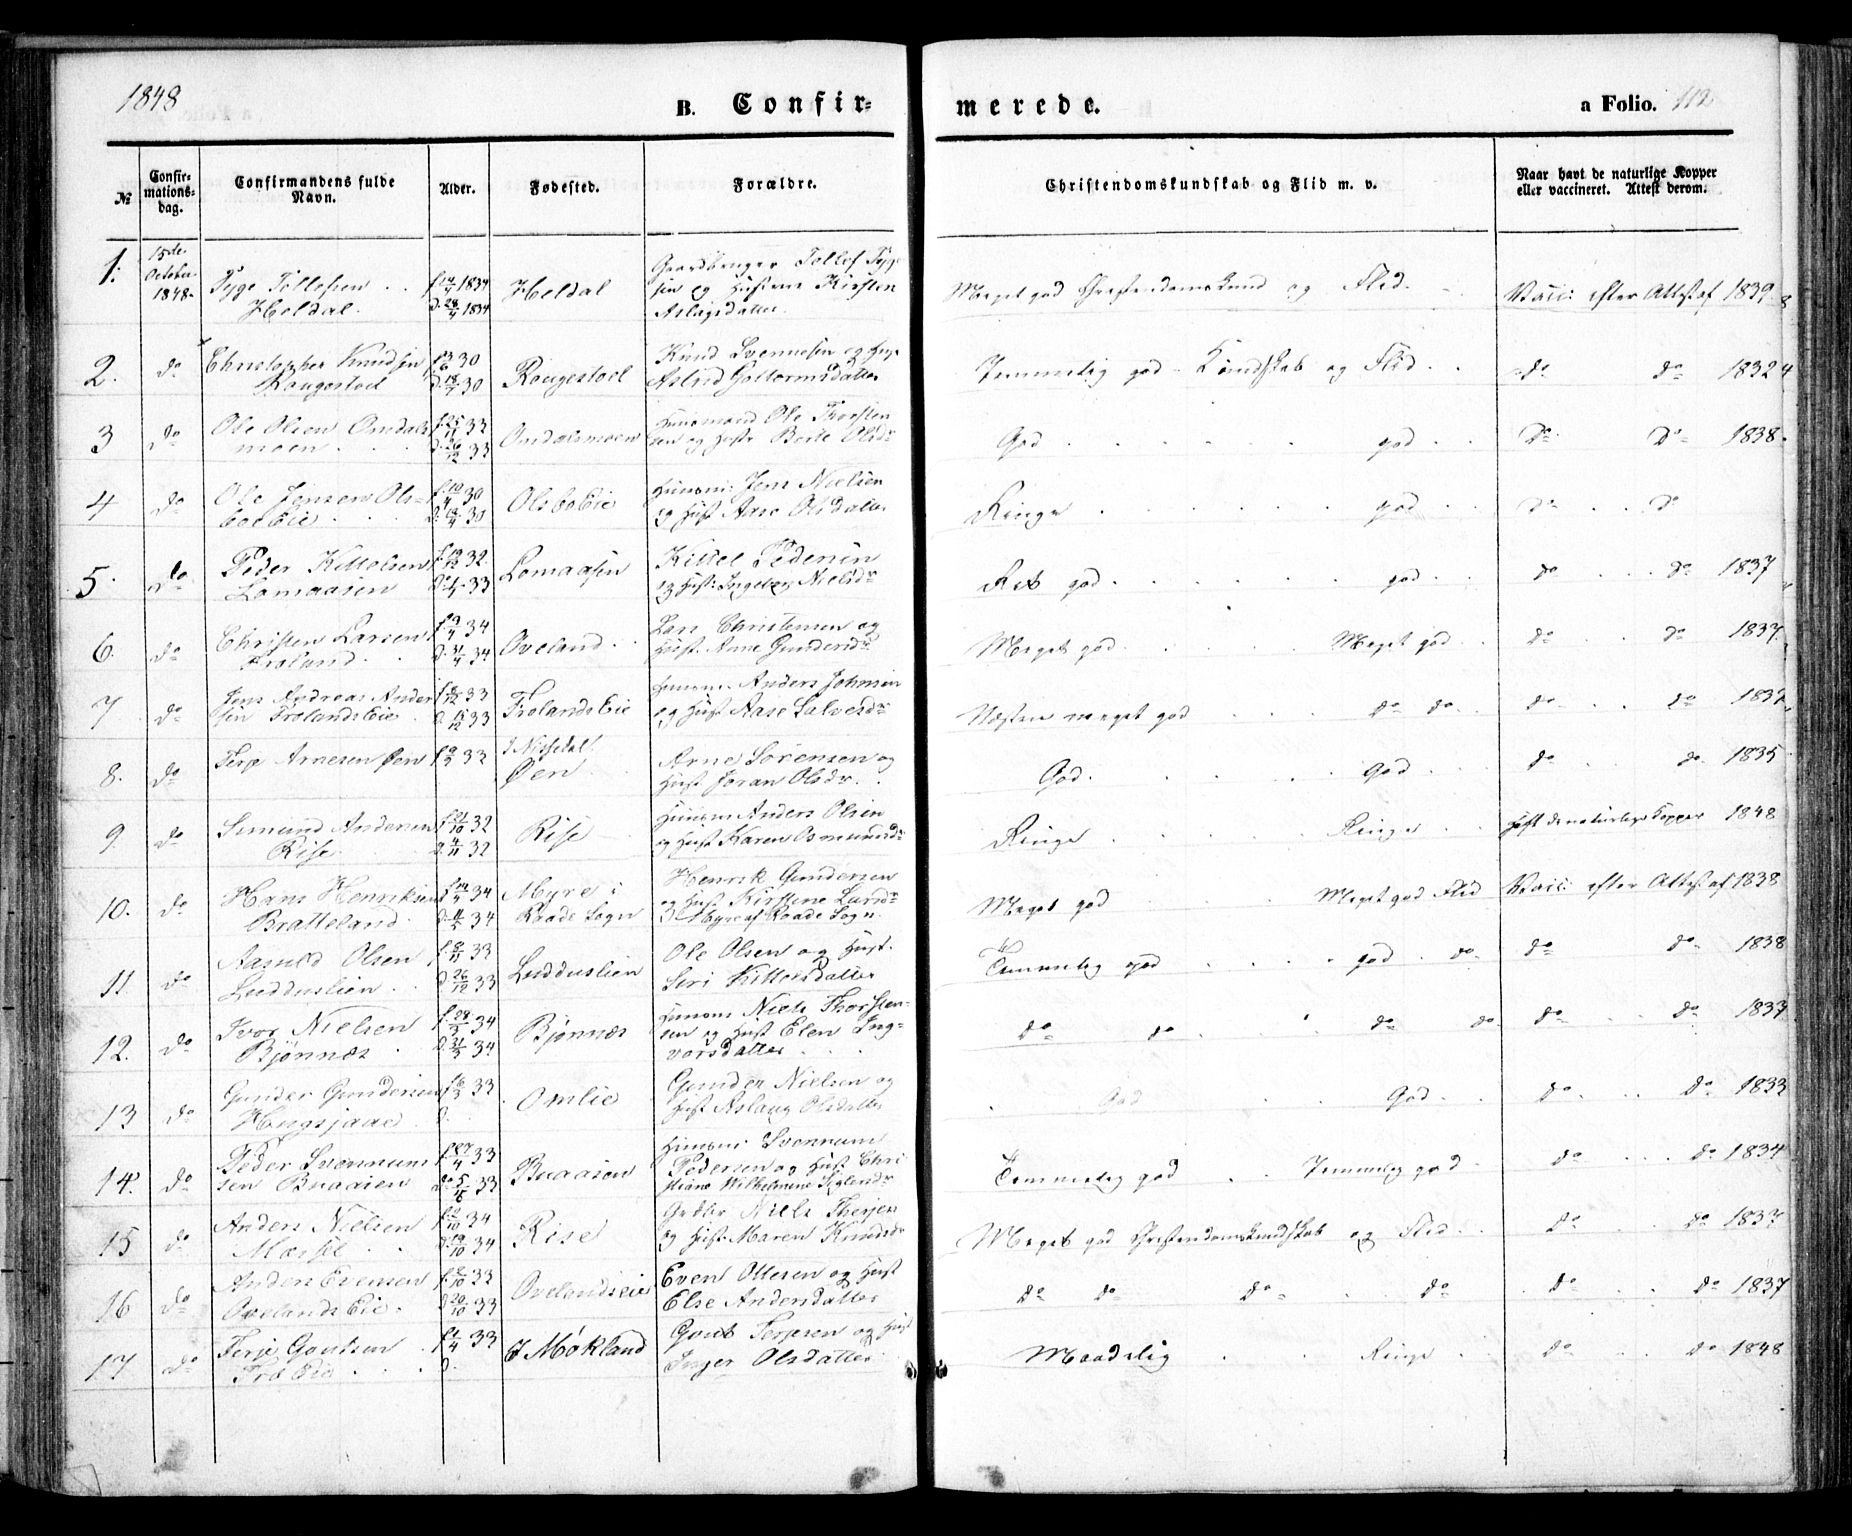 1848
B. Confir-
merede.
a Folio. 112
№
Confir-
mations-
dag.
Confirmandens fulde
Navn.
Alder.
Fødested.
Forældre.
Christendomskundskab og Flid m. v.
Naar havt de naturlige Kopper
eller vaccineret. Attest derom.
1.
15de
October
1848.
Tyge Tollefsen
Heldal.
f. 14/4 1834
d. 28/4 1834
Heldal
Gaardbruger Tollef Tyge
sen og Hustrue Kirsten
Aslagsdatter
Meget god Christendomskund og Flid.
Vacc: efter Attest af 1839
2.
do
Christopher Knudsen
Raugestoel
30
d. 18/7 30
Raugestoel
Knud Svennesen og Hus
Astrid Guttormsdatter
Temmelig god Kundskab og Flid
do do 1832
3
do
Ole Olsen Omdals
moen
f. 25/11 33
d. 26/12 33
Omdalsmoen
Huusmand Ole Thorsten
sen og Hustr Berte Olsdr
God god
do do 1838.
4
do
Ole Jensen Ols-
boe Eie
f. 10/4 30
d. 18/4 30
Olsbo Eie
Huusm: Jens Nielsen
og Hust Aase Olsdatter
Ringe god
do do
5.
do
Peder Kittelsen
Lomaasen
f. 19/12 32.
33
Lomaasen
Kittel Pedersen
og Hust: Ingeborg Nielsdr
Ret god god
do do 1837
6.
do
Christen Larsen
Froland
f. 19/4 34
34
Oveland
Lars Christensen og
Hust. Anne Gundersdr
Meget god. Meget god
do do 1837
7
do
Jens Andreas Ander
sen Frolands Eie
33
33
Frolands Eie
Huusm: Anders Johnsen
og Hust Aase Salvesdr
Næsten meget god do do
do do 1837
8.
do
Terje Arnesen Øen
32
I Nissedal
Øen
Arne Sørensen og
Hust Joran Olsdr.
God. God
do do 1835
9
do
Osmund Andersen
Rise.
f. 21/10 32
d. 4/11 32
Rise
Huusm Anders Olsen
og Hust Karen Osmundsdr
Ringe Ringe
havt de naturlige Kopper 1848
10.
do
Hans Henriksen
Bratteland
34
34
Myre i
Raade Sogn
Henrik Gundersen
og Hust Kirstene Larsdr
Myre af Raade Sogn.
Meget god Meget god Flid
Vacc: efter Attest af 1838
11
do
Aasuld Olsen
Ludduslien
f. 8/11 33
d. 26/12 33
Ludduslien
Ole Olsen og Hust.
Siri Kittelsdatter
Temmelig god god do
do do 1838
12.
do
Ivor Nielsen
Bjønnes
f. 28/3 34
d. 31/3 34
Bjønnes
Huusm Niels Thorsten-
sen og Hust Elen Ing-
vorsdatter
do do do do
do do 1837
13
do
Gunder Gundersen
Haugsjaae
33
d.
Omlie
Gunder Nielsen og
Hust Aslaug Olsdatter
God God
do do 1833
14.
do
Peder Svennum
sen Buaasen
f. 27/4 33
33
Buaasen
Huusm: Svennum
Pedersen og Hust Chri
stiane Wilhelmine
Temmelig god Temmelig god
do do 1834
15
do
Anders Nielsen
Messel
34
d. 19/10 34
Rise
Niels Therjes
og Hust Maren Knudsdr
Meget god Christendomskundskab og Flid
do do 1837
16
do
Anders Evensen
Ovelands Eie.
33
d. 20/10 33
Ovelandseie
Even Ottesen og Hust
Else Andersdatter
do do do do
do do 1837
17
do
Terje Goutsen
Fræ Eie
f. 1/4 33
d.
I Møkland
Gout Terjesen og Hust
Inger Olsdatter
Maadelig Ringe
do do 1848